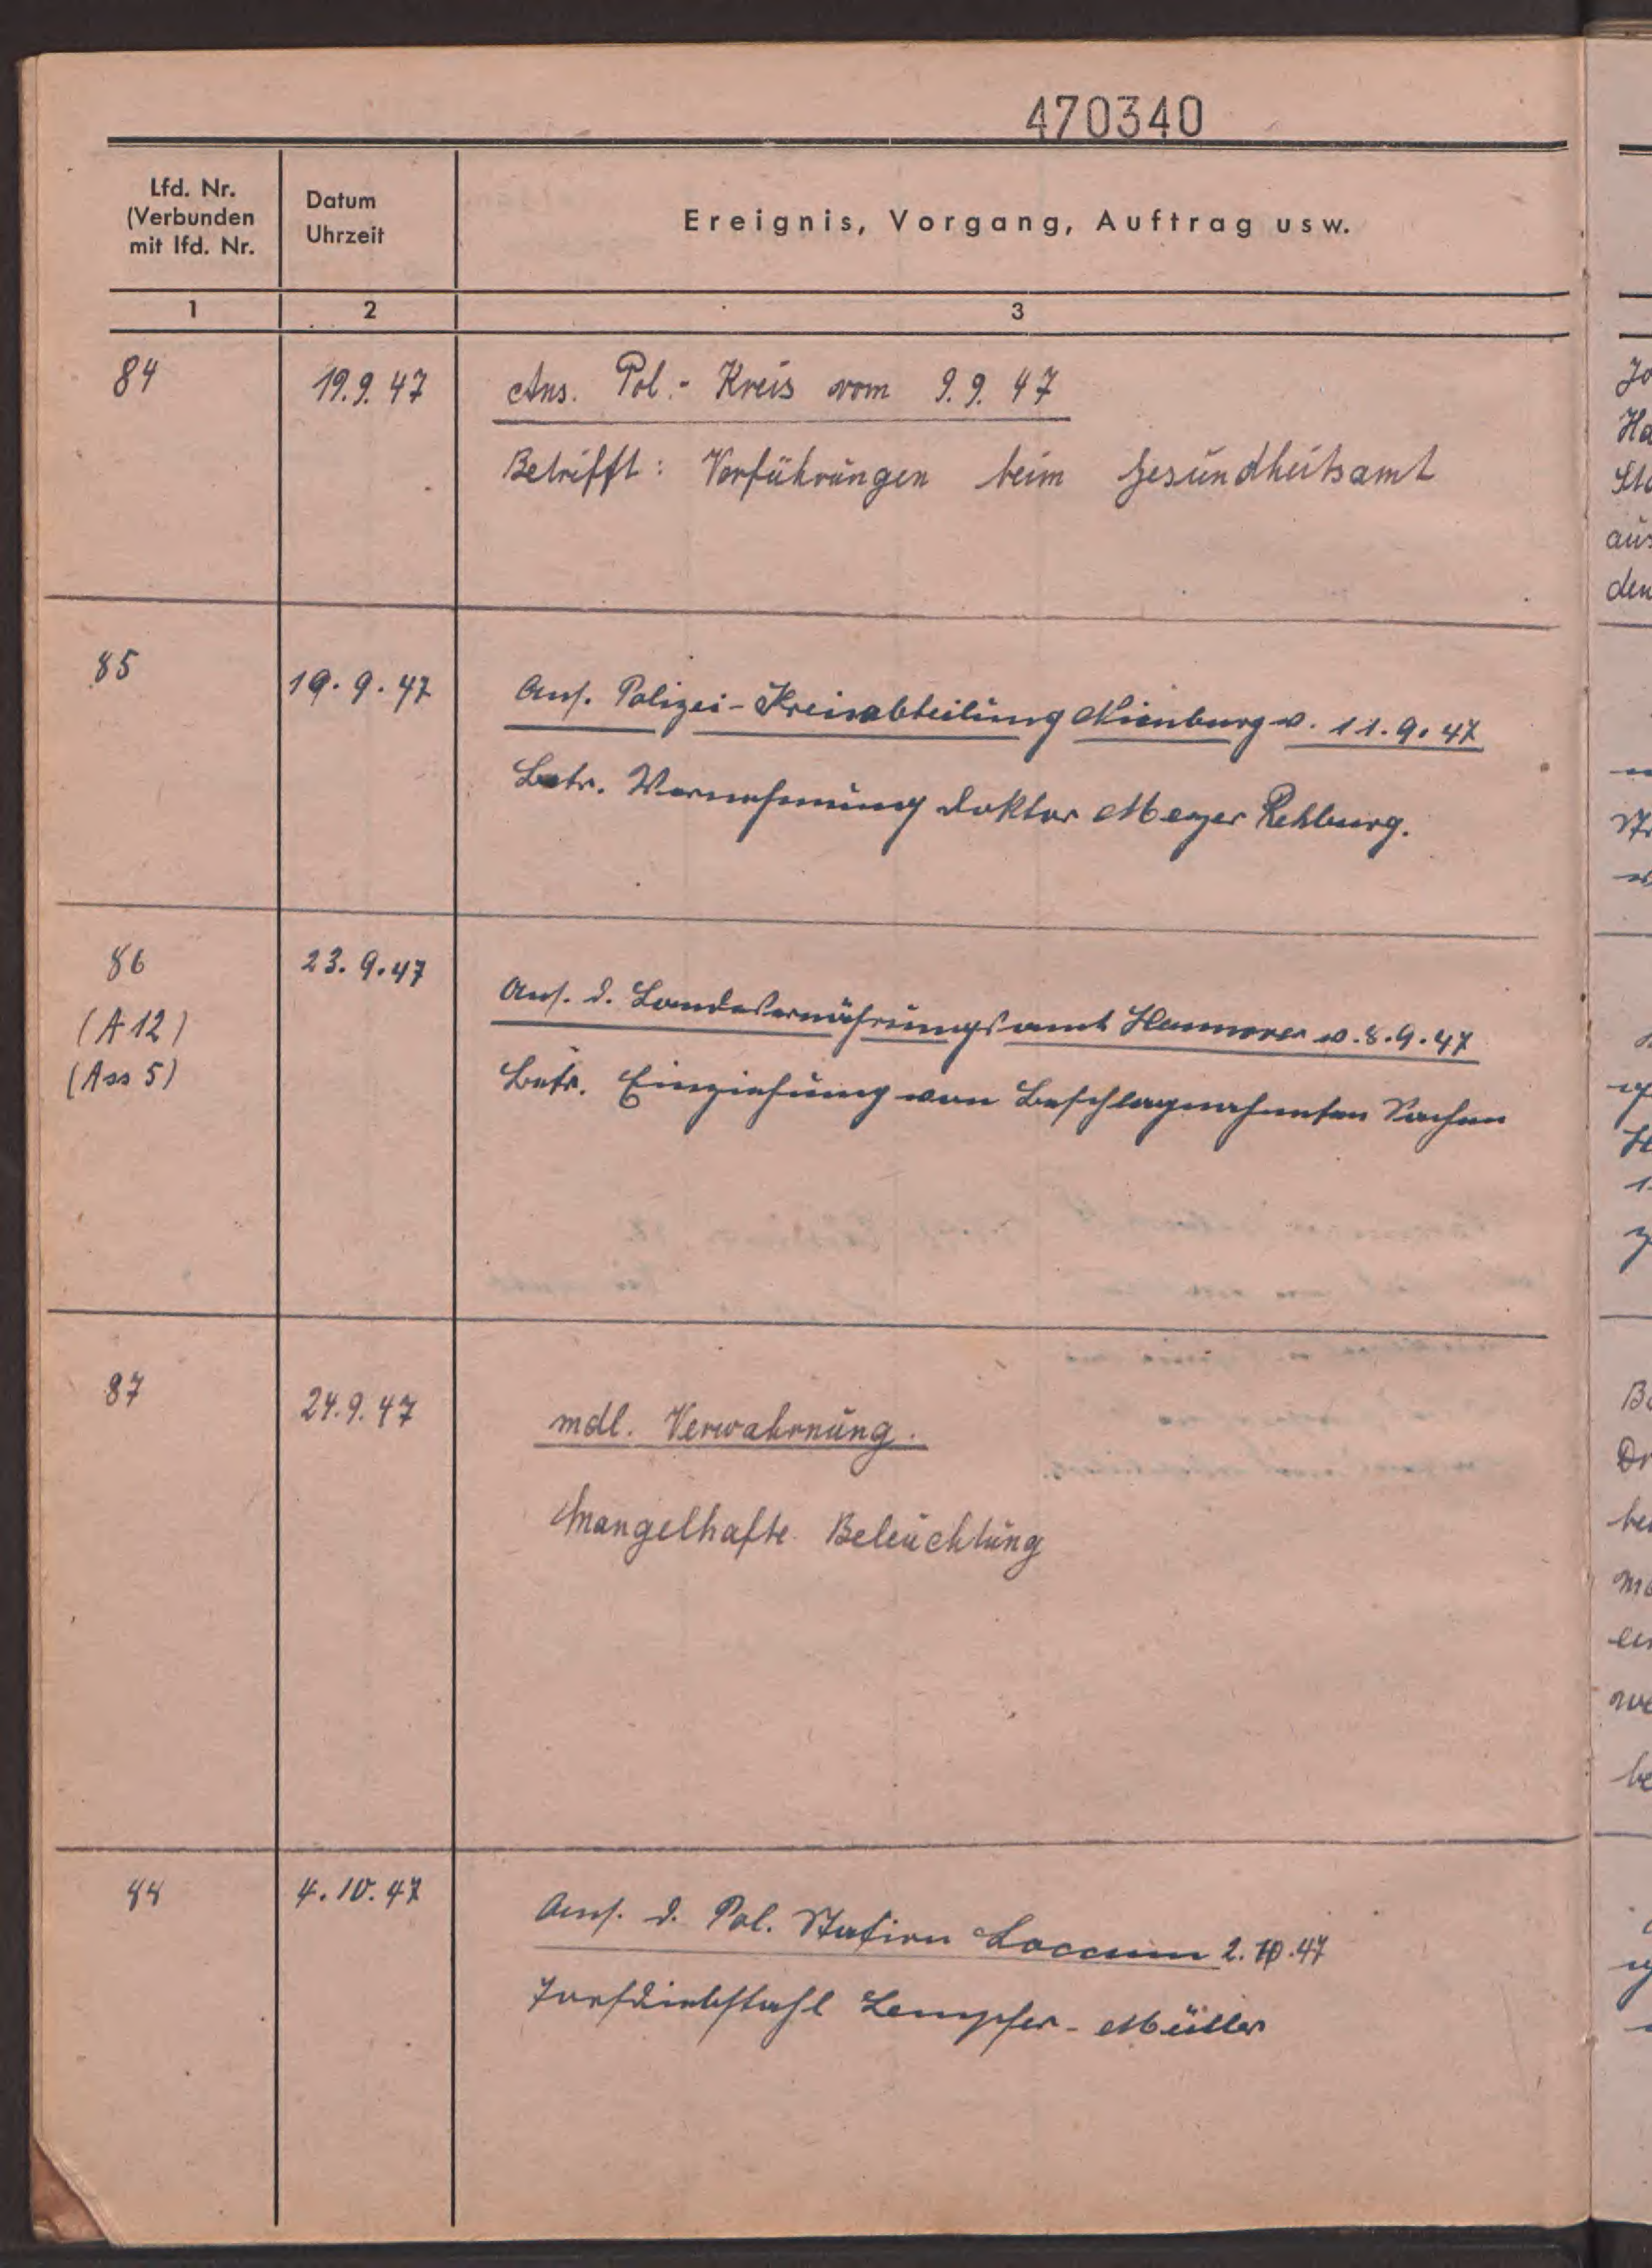 470340
Lfd. Nr.
(Verbunden
mit lfd. Nr.
Datum
Uhrzeit
Ereignis, Vorgang, Auftrag usw.
1
2
3
84
19.9.47
Ans. Pol.- Kreis vom 9.9.47
Betrifft: Vorführungen beim Gesundheitsamt
85
19.9.47
Ans. Polizei-Kreisabteilung Nienburg v. 11.9.47
Betr. Vernehmung Doktor Meyer Rehburg.
86
(A 12)
(Ass 5)
23.9.47
Ans. d. Landesernährungsamt Hannover v. 8.9.47
Betr. Einziehung von Beschlagnahmten Sachen
87
24.9.47
mdl. Verwahrnung.
Mangelhafte Beleuchtung
88
4.10.47
Ans. d. Pol. Station Loccum 2.10.47
Torfdiebstahl - Müller